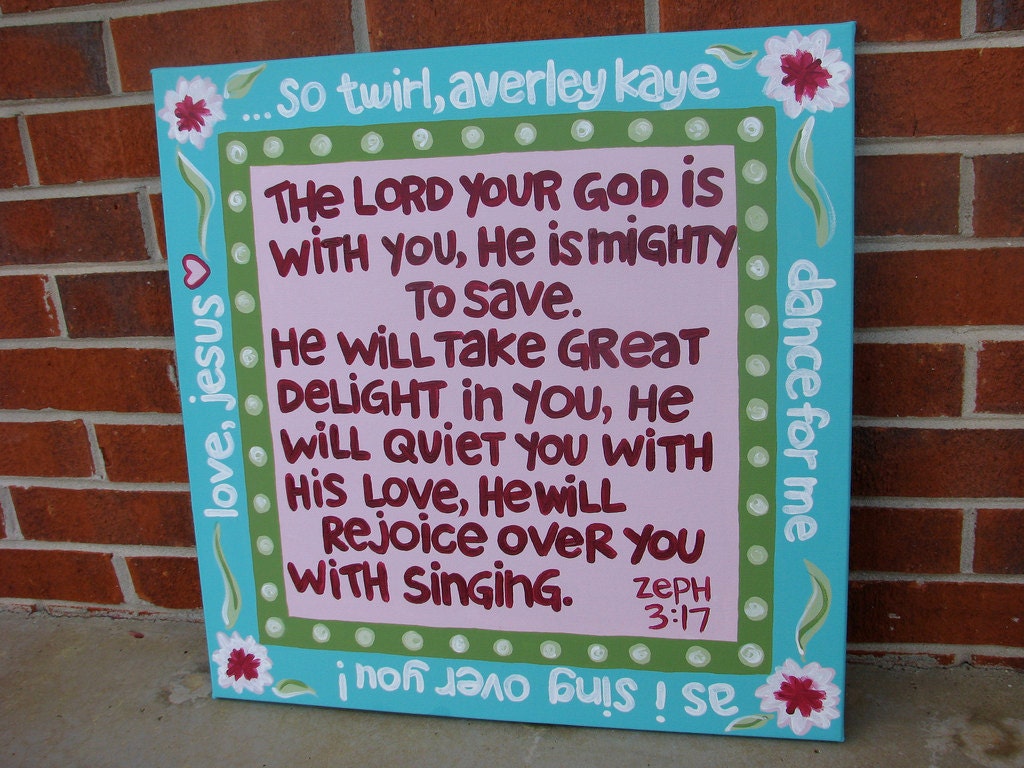 ...so twirl, averley kaye
THe LORD YOUR GOD iS
WiTH YOU, He iS MiGHTY
TO Save.
He WiLL TaKe GReaT
DeLiGHT in YOU, He
WiLL QUieT YOU WiTH
HiS LOVe, He WiLL
RejOiCe OVeR YOU
WiTH SinGinG.
ZePH
3:17
dance for me
as i sing over you!
love, jesus